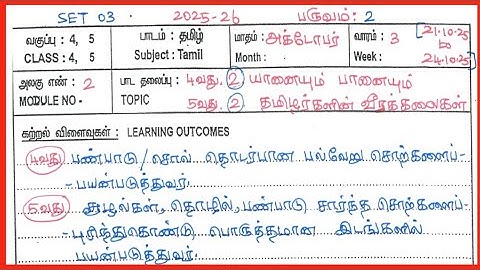 SET 03 . 2025-26 பருவம்: 2
வகுப்பு : 4, 5 பாடம் : தமிழ் மாதம் : அக்டோபர் வாரம் : 3 21.10.25
CLASS : 4, 5 Subject : Tamil Month : Week : to 24.10.25
அலகு எண் : 2 பாட தலைப்பு : 4வது. 2 யானையும் பானையும்
MODULE NO - TOPIC 5வது. 2 தமிழர்களின் வீரக்கலைகள்
கற்றல் விளைவுகள் : LEARNING OUTCOMES
4வது பண்பாடு/சொல் தொடர்பான பல்வேறு சொற்களைப்-
-பயன்படுத்துவர்.
5வது சூழல்கள், தொழில், பண்பாடு சார்ந்த சொற்களைப்-
-புரிந்துகொண்டு பொருத்தமான இடங்களில்
பயன்படுத்துவர்.